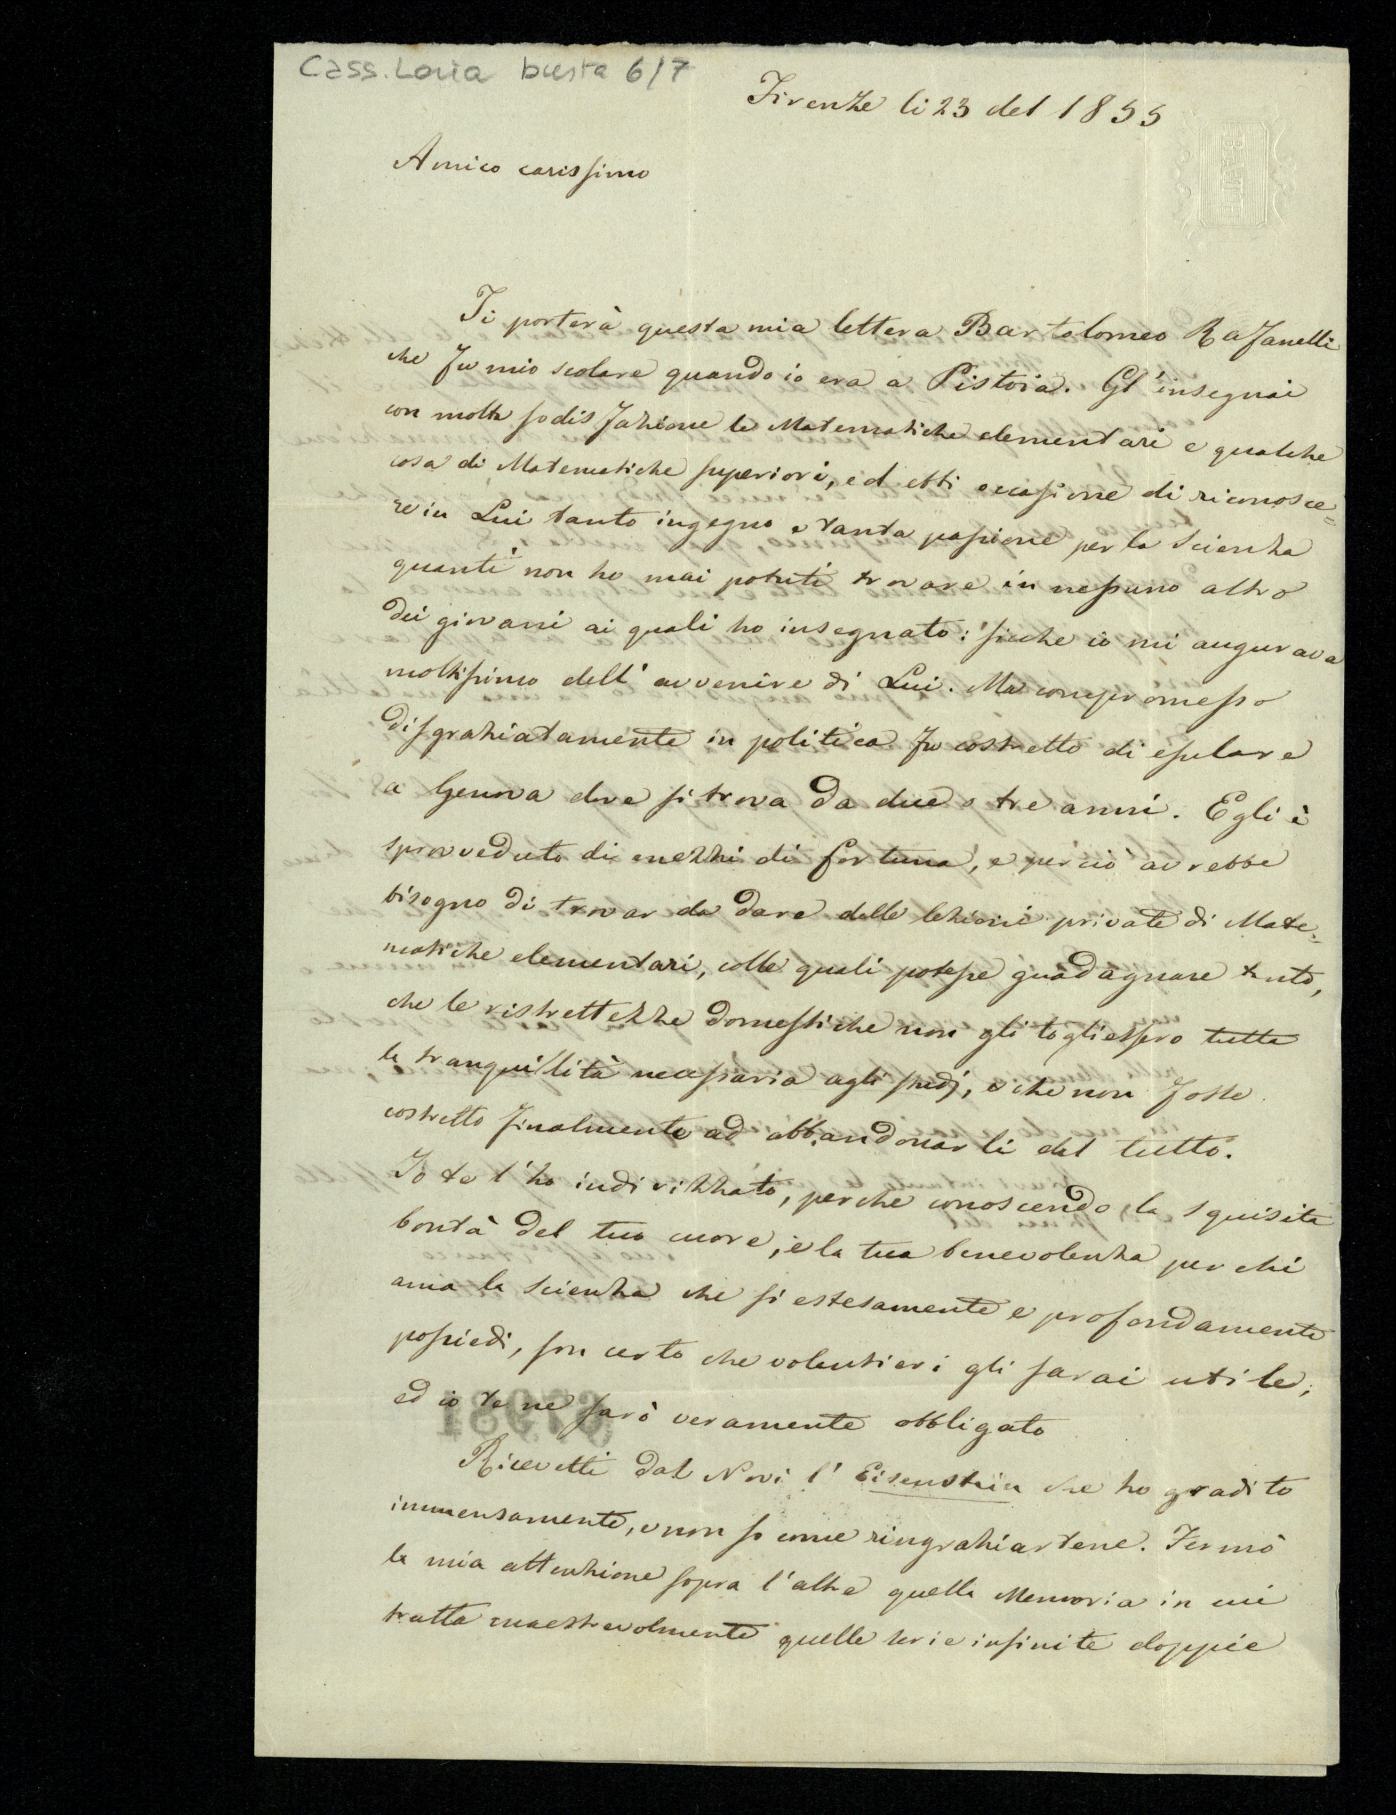 Cass. Loria busta 6/7
Firenze li 23 del 1855
Amico carissimo
Ti porterà questa mia lettera Bartolomeo Rafanelli
che fu mio scolare quando io era a Pistoia. Gl'insegnai
con molta sodisfazione le Matematiche elementari e qualche
cosa di Matematiche superiori, ed ebbi occasione di riconosce=
re in Lui tanto ingegno e tanta passione per la Scienza
quanti non ho mai potuti trovare in nessuno altro
dei giovani ai quali ho insegnato: sicche io mi augurava
moltissimo dell'avvenire di Lui. Ma compromesso
disgraziatamente in politica fu costretto di esulare
a Genova dove si trova da due o tre anni. Egli è
sprovveduto di mezzi di fortuna, e perciò avrebbe
bisogno di trovar da dare delle lezioni private di Mate=
matiche elementari, colle quali potesse guadagnare tanto,
che le ristrettezze domestiche non gli togliessero tutta
la tranquillità necessaria agli studj, e che non fosse
costretto finalmente ad abbandonarli del tutto.
Io te l'ho indirizzato, perche conoscendo la squisita
bontà del tuo cuore, e la tua benevolenza per chi
ama la Scienza che sì estesamente e profondamente
possiedi, son certo che volentieri gli sarai utile;
ed io te ne sarò veramente obbligato
Ricevetti dal Novi l'Eisenstein che ho gradito
immensamente, e non so come ringraziartene. Fermò
la mia attenzione sopra l'altre quella Memoria in cui
tratta maestrevolmente quelle serie infinite doppie